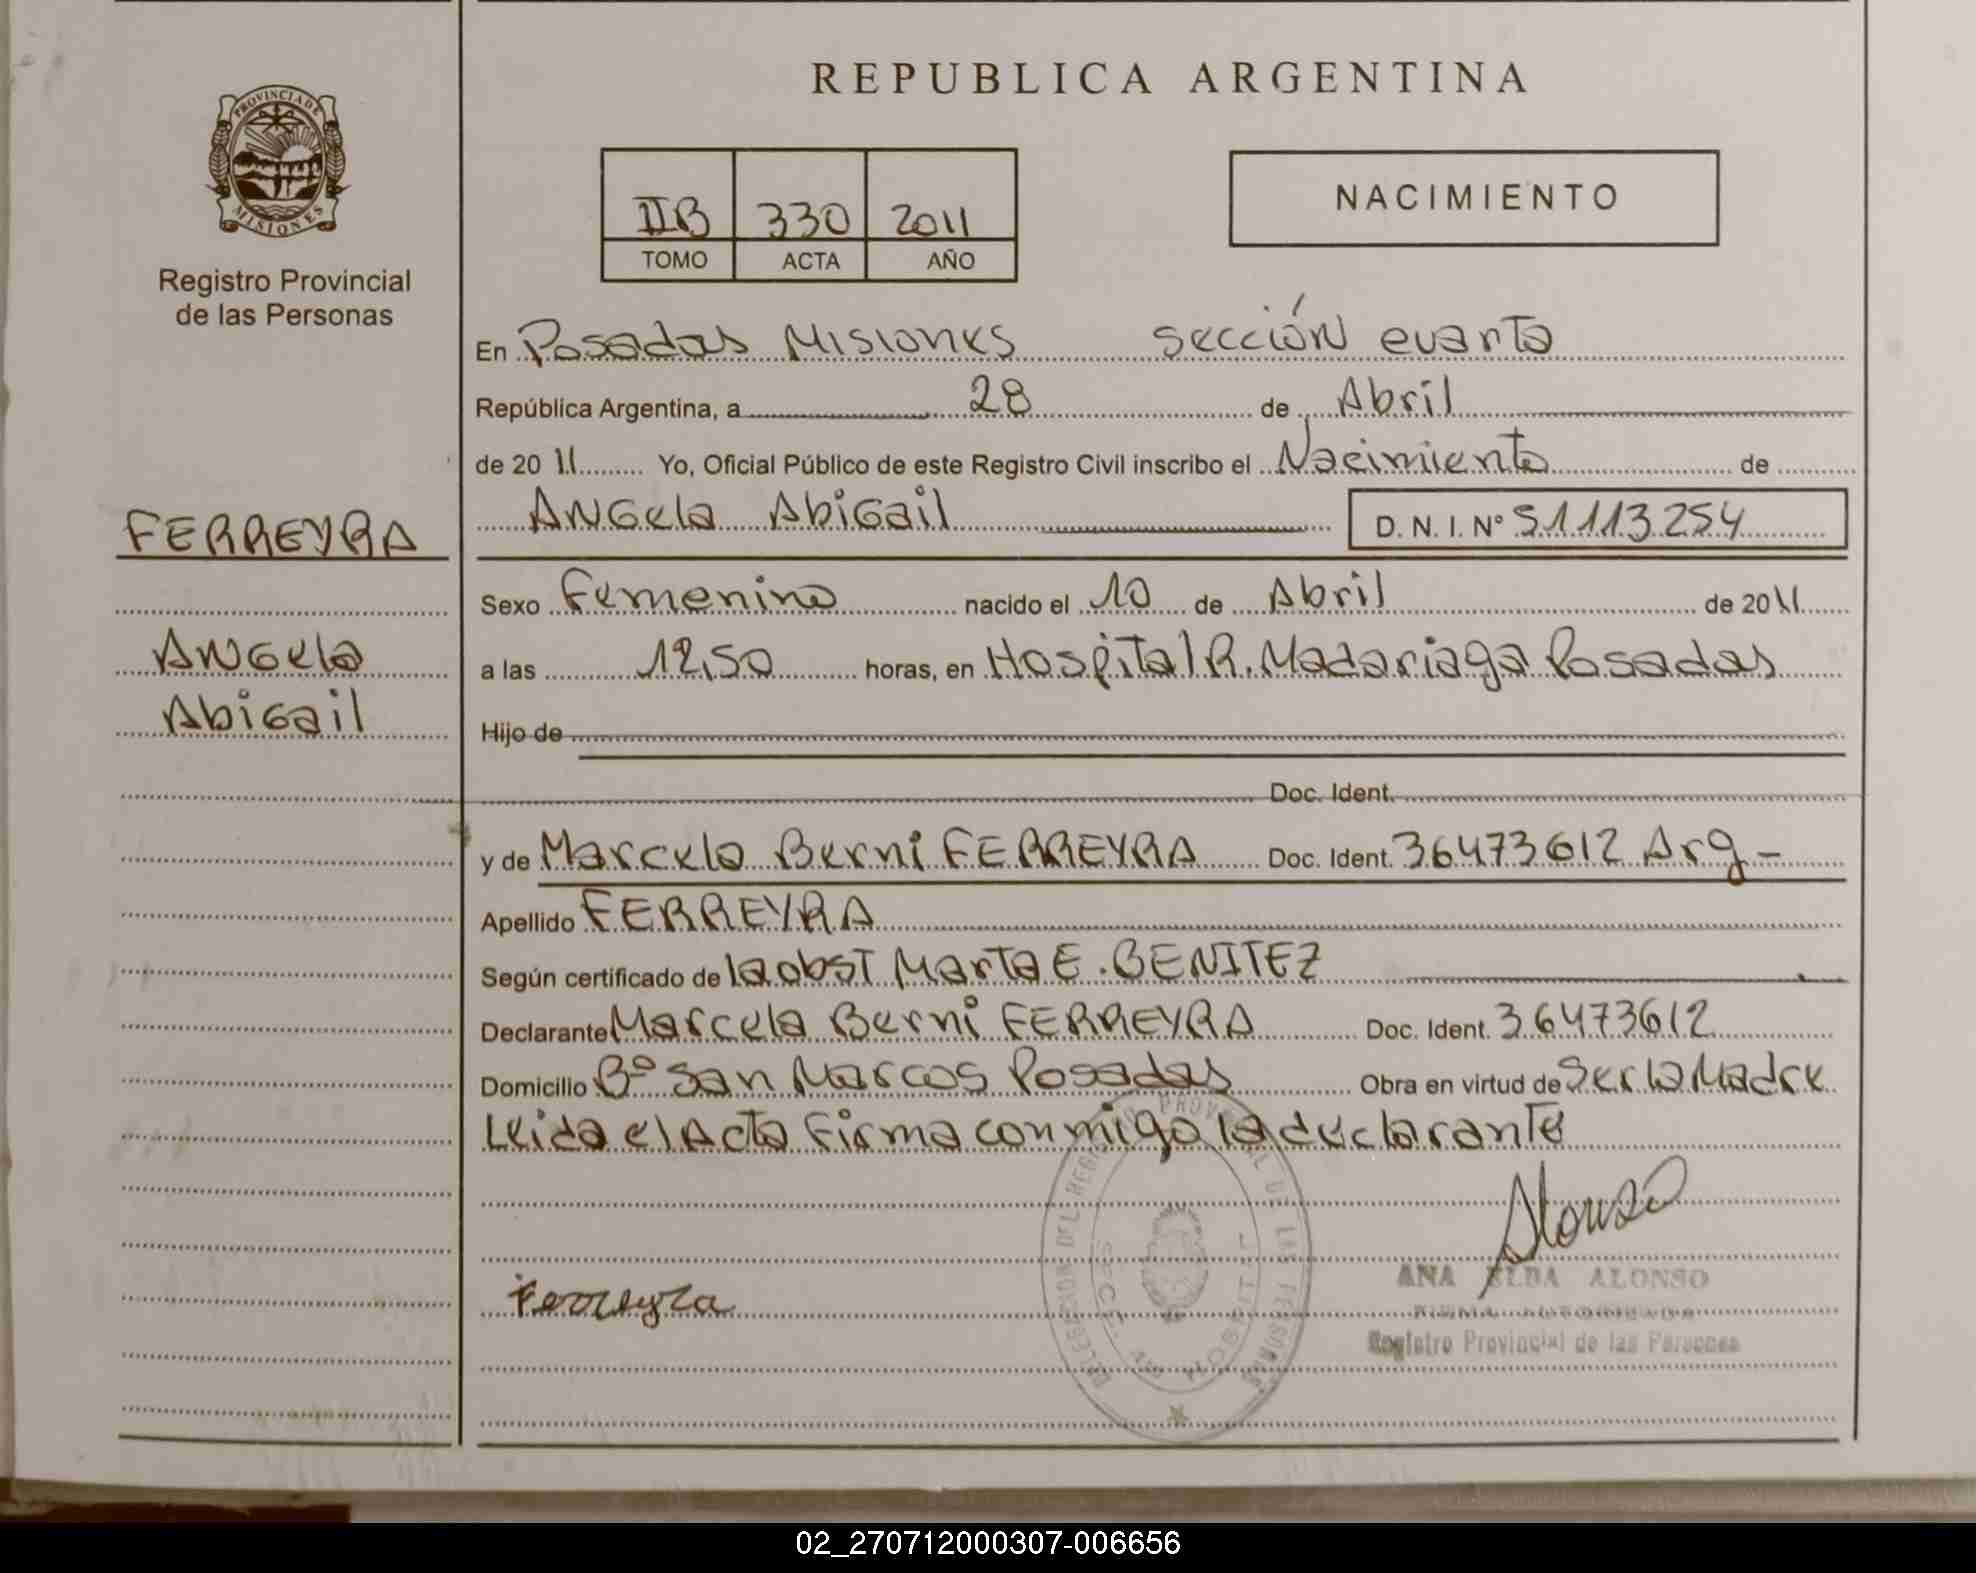 PROVINCIA DE
MISIONES
Registro Provincial
de las Personas
FERREYRA
Angela
Abigail
REPUBLICA ARGENTINA
IIB 330 2011
TOMO ACTA AÑO
NACIMIENTO
En Posadas Misiones sección cuarta
República Argentina, a 28 de Abril
de 2011 Yo, Oficial Público de este Registro Civil inscribo el Nacimiento de
Angela Abigail D. N. I. Nº 51113254
Sexo Femenino nacido el 10 de Abril de 2011
a las 12,50 horas, en Hospital R. Madariaga Posadas
Hijo de
Doc. Ident.
y de Marcela Berni FERREYRA Doc. Ident. 36473612 Arg -
Apellido FERREYRA
Según certificado de la obst Marta E. BENITEZ
Declarante Marcela Berni FERREYRA Doc. Ident. 36473612
Domicilio Bº San Marcos Posadas Obra en virtud de Ser la Madre
Leida el Acta Firma conmigo la declarante
Alonso
Ferreyra
ANA ELBA ALONSO
FIRMA AUTORIZADA
Registro Provincial de las Personas
DELEGACION DEL REGISTRO PROVINCIAL DE LAS PERSONAS
02_270712000307-006656